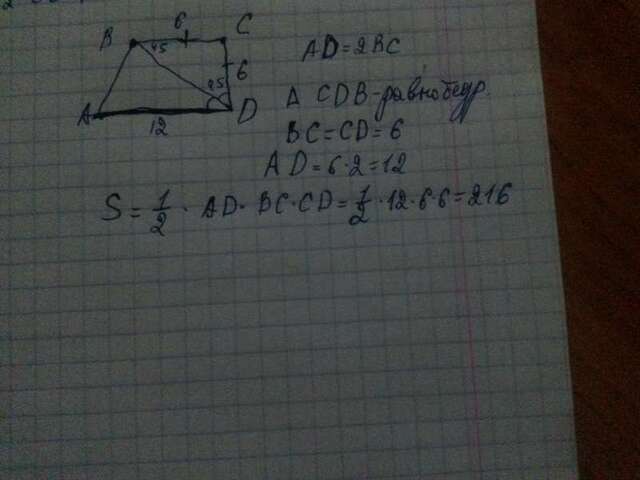 6
B C
45
45 6
A D
12
AD=2BC
Δ CDB-равнобедр.
BC=CD=6
AD=6·2=12
S=1/2 · AD· BC·CD=1/2·12·6·6=216